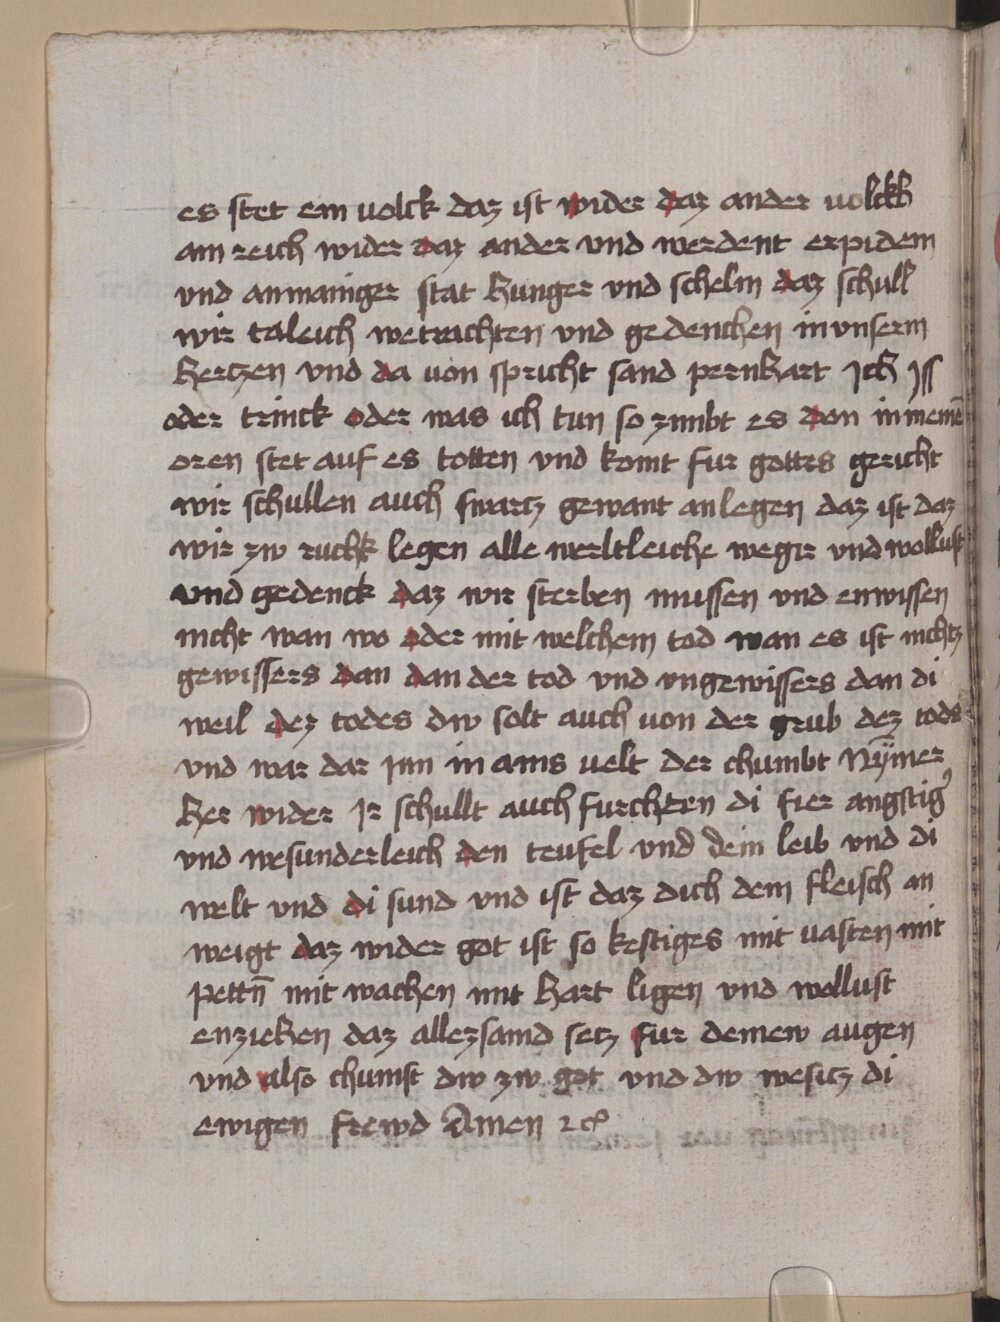 es stet ein volck daz ist wider daz ander volckh
ain reich wider daz ander vnd werdent erpidem
vnd an mainiger stat hunger vnd schelm daz schull
wir taleich wetrachten vnd gedencken in vnserm
hertzen vnd da von spricht sand pernhart Ich Iss
oder trinck oder was ich tun so zimbt es don in meinē
oren stet auf es totten vnd komt fur gottes gericht
wir schullen auch swartz gewant an legen daz ist daz
wir zw ruckh legen alle werltleiche wegir vnd wollust
vnd gedenck daz wir sterben mussen vnd enwissen
nicht wan wo oder mit welchem tod wan es ist nichtz
gewissers dan dan der tod vnd vngewissers dan di
weil dez todes dw solt auch von der grub dez tods
vnd war dar Inn in ains velt der chumbt Nÿmer
her wider Ir schullt auch furchten di fier angstig
vnd wesunderleich den teufel vnd dein leib vnd di
welt vnd di sund vnd ist daz dich dein fleisch an
weigt daz wider got ist so kestiges mit vasten mit
pettn̄ mit wachen mit hart ligen vnd wollust
enziehen daz allezsamd setz fur deinew augen
vnd also chumst dw zw got vnd dw wesitz di
ewigen frewd Amen ꝛc